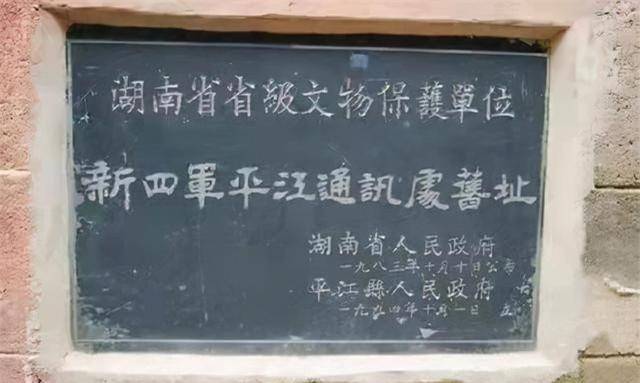 湖南省省級文物保護單位
新四軍平江通訊處舊址
湖南省人民政府
一九八三年十月十日公布
平江縣人民政府
一九九四年十月一日 立